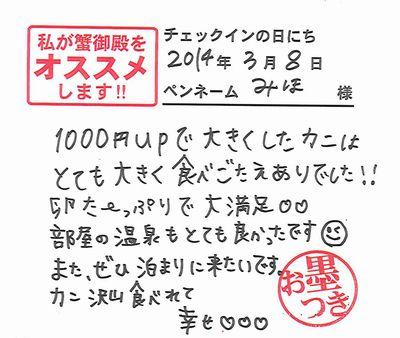 私が蟹御殿を
オススメ
します!!
チェックインの日にち
2014年 3月 8日
ペンネーム みほ 様
1000円upで大きくしたカニは
とても大きく食べごたえありでした!!
卵た〜っぷりで大満足♡♡
部屋の温泉もとても良かったです☺
また、ぜひ泊まりに来たいです。
カニ沢山食べれて
幸せ♡♡♡
お墨
つき